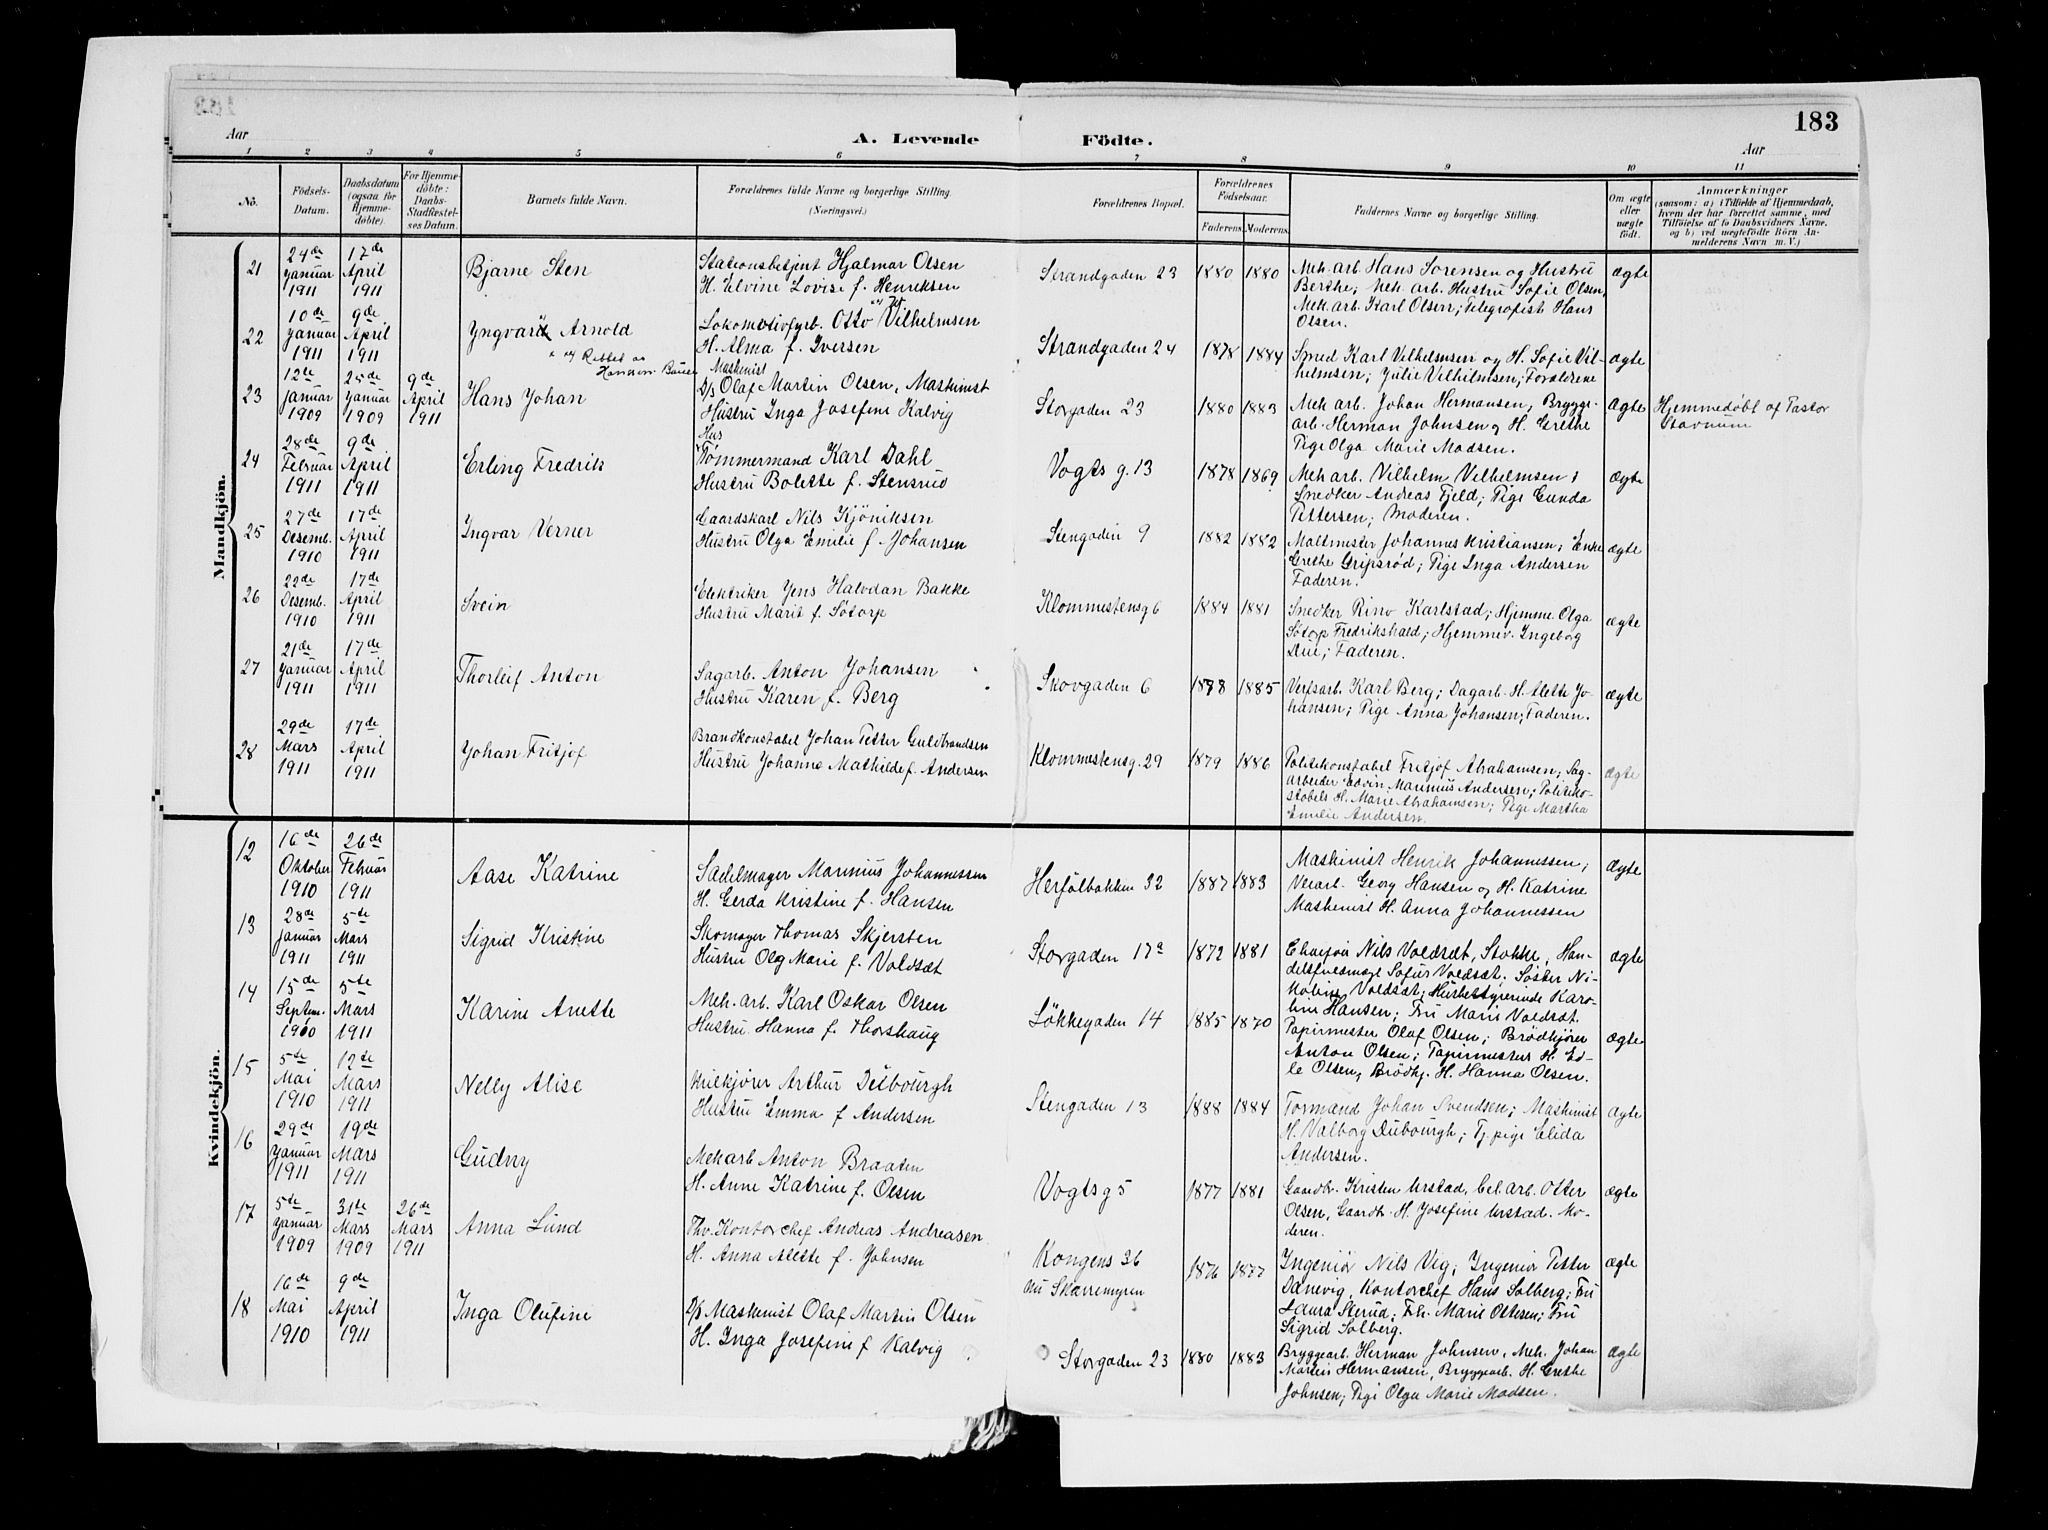 183
Aar
A. Levende Födte.
Aar
1 2 3 4 5 6 7 8 9 10 11
No.
Födsels-Datum.
Daabsdatum (ogsaa for Hjemme-döbte).
For Hjemme-döbte: Daabs-Stadfæstel-ses Datum.
Barnets fulde Navn.
Forældrenes fulde Navne og borgerlige Stilling.
(Næringsvei.)
Forældrenes Bopæl.
Forældrenes Födselsaar.
Faderens. Moderens.
Faddernes Navne og borgerlige Stilling.
Om ægte eller uægte födt.
Anmærkninger
(saasom: a) i Tilfælde af Hjemmedaab,
hvem der har forrettet samme, med
Tilföielse af to Daabsvidners Navne,
og b) ved uægtefödte Börn An-
melderens Navn m. V.)
Mandkjön.
21
24de Januar 1911
17de April 1911
Bjarne Sten
Stationsbetjent Hjalmar Olsen
H. Elvine Lovise f. Henriksen
Strandgaden 23
1880 1880
Mek. arb. Hans Sørensen og Hustru
Berthe; Mek. arb. Hustru Sofie Olsen,
Mek. arb. Karl Olsen; Telegrafist Hans
Olsen.
ægte
22
10de Januar 1911
9de April 1911
Yngvar Arnold
Lokomotivfyrb. Otto Vilhelmsen
H. Alma f. Iversen
Strandgaden 24
1878 1884
Smed Karl Vilhelmsen og H. Sofie Vil-
helmsen; Julie Vilhelmsen; Forældrene
ægte
23
12te Januar 1909
25de Januar 1909
9de April 1911
Hans Johan
Maskinist
D/S Olaf Martin Olsen, Maskinist
Hustru Inga Josefine Kalvig
Storgaden 23
1880 1883
Mek arb. Johan Hermansen; Brygge-
arb. Herman Johnsen og H. Grethe
Pige Olga Marie Madsen.
ægte
Hjemmedøbt af Pastor
Stavnum
24
28de Februar 1911
9de April 1911
Erling Fredrik
Hus
Tømmermand Karl Dahl
Hustru Bolette f. Stensrud
Vogts g. 13
1878 1869
Mek arb. Vilhelm Vilhelmsen;
Snedker Andreas Fjeld; Pige Gunda
Pettersen; Moderen.
ægte
25
27de Desemb. 1910
17de April 1911
Ingvar Verner
Gaardskarl Nils Kjöniksen
Hustru Olga Emilie f. Johansen
Stengaden 9
1882 1882
Maltmester Johannes Kristiansen; Enke
Grethe Gripsrød; Pige Inga Andersen
Faderen.
ægte
26
22de Desemb. 1910
17de April 1911
Svein
Elektriker Jens Halvdan Bakke
Hustru Marit f. Søtorp
Klommestensg 6
1884 1881
Snedker Rino Karlstad; Hjemmev. Olga
Søtorp Fredrikshald; Hjemmev. Ingeborg
Due; Faderen.
ægte
27
21de Januar 1911
17de April 1911
Thorleif Anton
Sagarb. Anton Johansen
Hustru Karen f. Berg
Skovgaden 6
1885
Verfsarb. Karl Berg; Dagarb. H. Alette Jo-
hansen; Pige Anna Johansen; Faderen.
ægte
28
29de Mars 1911
17de April 1911
Johan Fritjof
Brandkonstabel Johan Petter Guldbrandsen
Hustru Johanne Mathilde f. Andersen
Klommestensg. 29
1879 1886
Politikonstabel Fritjof Abrahamsen; Sag-
arbeider Edvin Marinius Andersen; Politiko-
stabels H. Marie Abrahamsen; Pige Martha
Emilie Andersen.
ægte
Kvindekjön.
12
16de Oktober 1910
26de Februar 1911
Aase Katrine
Sadelmager Marinius Johannessen
H. Gerda Kristine f. Hansen
Herfølbakken 32
1887 1883
Maskinist Henrik Johannessen;
Georg Hansen og H. Katrine
Maskinist H. Anna Johannessen
ægte
13
28de Januar 1911
5te Mars 1911
Sigrid Kristine
Skomager Thomas Skjersten
Hustru Olg Marie f. Voldsæt
Storgaden 17a
1872 1881
Nils Voldsæt, Stokke, Han-
Sofus Voldsæt; Søster Ni-
koline Voldsæt; Husbestyrerinde Karo-
line Hansen; Fru Marie Voldsæt.
ægte
14
15de Septem. 1910
5te Mars 1911
Karine Anette
Mek. arb. Karl Oskar Olsen
Hustru Hanna f. Thorshaug
Løkkegaden 14
1885 1870
Papirmester Olaf Olsen; Brödkjører
Anton Olsen; Papirmesters H. Ed-
le Olsen, Brödkj. H. Hanna Olsen.
ægte
15
5te Mai 1910
12te Mars 1911
Nelly Alise
Arthur Dubourgh
Hustru Emma f. Andersen
Stengaden 13
1888 1884
Formand Johan Svendsen; Maskinist
H. Valborg Dubourgh; Tj. pige Elida
Andersen.
ægte
16
29de Januar 1911
19de Mars 1911
Gudny
Mek arb Anton Braaten
H. Anne Katrine f. Olsen
Vogts g 5
1877 1881
Gaardbr. Kristen Urstad, Cel. arb. Otter
Olsen, Gaardbr. H. Josefine Urstad. Mo-
deren.
ægte
17
5te Januar 1909
31te Mars 1909
26de Mars 1911
Anna Lund
Thv. Kontorchef Andreas Andreasen
H. Anna Alette f. Johnsen
Kongens 36
nu Skarremyren
1876 1877
Ingeniør Nils Vig; Ingeniør Petter
Danevig, Kontorchef Hans Solberg; Fru
Laura Sterud; Frk. Marie Ottesen; Fru
Sigrid Solberg.
ægte
18
16de Mai 1910
9de April 1911
Inga Olufine
D/S Maskinist Olaf Martin Olsen
H. Inga Josefine f Kalvig
Storgaden 23
1880 1883
Bryggearb. Herman Johnsen, Mek. Johan
Martin Hermansen, Bryggearb. H. Grethe
Johnsen; Pige Olga Marie Madsen.
ægte